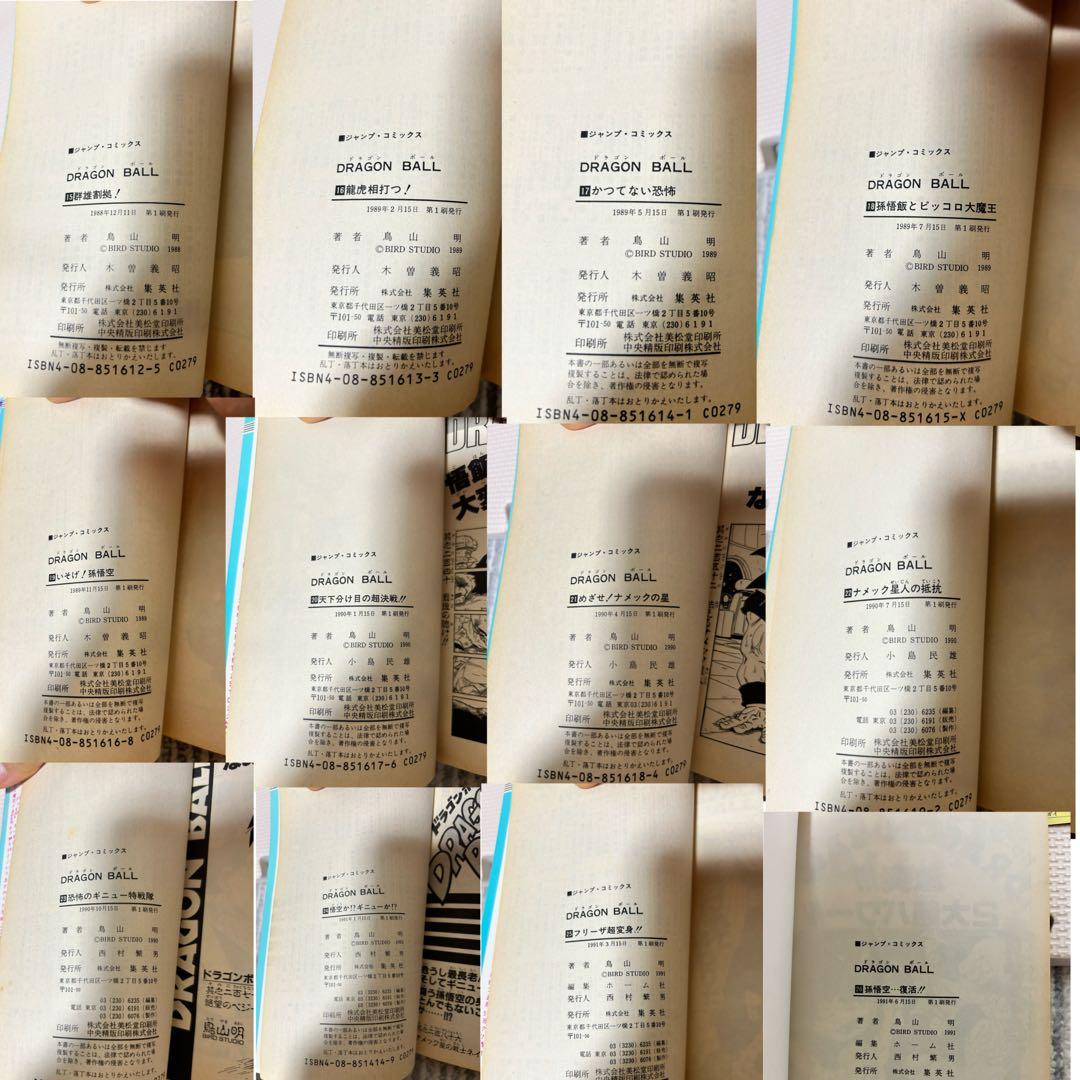 ■ジャンプ・コミックス
ドラゴン ボール
DRAGON BALL
15群雄割拠!
1988年12月11日 第1刷発行
著者 鳥山 明
©BIRD STUDIO 1988
発行人 木曽義昭
発行所 株式会社 集英社
東京都千代田区一ツ橋2丁目5番10号
〒101-50 電話 東京(230)6191
印刷所 株式会社美松堂印刷所
中央精版印刷株式会社
無断複写・複製・転載を禁じます
乱丁・落丁本はおとりかえいたします。
ISBN4-08-851612-5 C0279
■ジャンプ・コミックス
ドラゴン ボール
DRAGON BALL
16龍虎相打つ!
1989年2月15日 第1刷発行
著者 鳥山 明
©BIRD STUDIO 1989
発行人 木曽義昭
発行所 株式会社 集英社
東京都千代田区一ツ橋2丁目5番10号
〒101-50 電話 東京(230)6191
印刷所 株式会社美松堂印刷所
中央精版印刷株式会社
無断複写・複製・転載を禁じます
乱丁・落丁本はおとりかえいたします。
ISBN4-08-851613-3 C0279
■ジャンプ・コミックス
ドラゴン ボール
DRAGON BALL
17かつてない恐怖
1989年5月15日 第1刷発行
著者 鳥山 明
©BIRD STUDIO 1989
発行人 木曽義昭
発行所 株式会社 集英社
東京都千代田区一ツ橋2丁目5番10号
〒101-50 電話 東京(230)6191
印刷所 株式会社美松堂印刷所
中央精版印刷株式会社
本書の一部あるいは全部を無断で複写
複製することは、法律で認められた場
合を除き、著作権の侵害となります。
乱丁・落丁本はおとりかえいたします。
ISBN4-08-851614-1 C0279
■ジャンプ・コミックス
ドラゴン ボール
DRAGON BALL
18孫悟飯とピッコロ大魔王
1989年7月15日 第1刷発行
著者 鳥山 明
©BIRD STUDIO 1989
発行人 木曽義昭
発行所 株式会社 集英社
東京都千代田区一ツ橋2丁目5番10号
〒101-50 電話 東京(230)6191
印刷所 株式会社美松堂印刷所
中央精版印刷株式会社
本書の一部あるいは全部を無断で複写
複製することは、法律で認められた場
合を除き、著作権の侵害となります。
乱丁・落丁本はおとりかえいたします。
ISBN4-08-851615-X C0279
■ジャンプ・コミックス
ドラゴン ボール
DRAGON BALL
19いそげ!孫悟空
1989年11月15日 第1刷発行
著者 鳥山 明
©BIRD STUDIO 1989
発行人 木曽義昭
発行所 株式会社 集英社
東京都千代田区一ツ橋2丁目5番10号
〒101-50 電話 東京(230)6191
印刷所 株式会社美松堂印刷所
中央精版印刷株式会社
本書の一部あるいは全部を無断で複写
複製することは、法律で認められた場
合を除き、著作権の侵害となります。
乱丁・落丁本はおとりかえいたします。
ISBN4-08-851616-8 C0279
■ジャンプ・コミックス
ドラゴン ボール
DRAGON BALL
20天下分け目の超決戦!!
1990年1月15日 第1刷発行
著者 鳥山 明
©BIRD STUDIO 1990
発行人 小島民雄
発行所 株式会社 集英社
東京都千代田区一ツ橋2丁目5番10号
〒101-50 電話 東京(230)6191
印刷所 株式会社美松堂印刷所
中央精版印刷株式会社
本書の一部あるいは全部を無断で複写
複製することは、法律で認められた場
合を除き、著作権の侵害となります。
乱丁・落丁本はおとりかえいたします。
ISBN4-08-851617-6 C0279
悟飯
大
■ジャンプ・コミックス
ドラゴン ボール
DRAGON BALL
21めざせ!ナメックの星
1990年4月15日 第1刷発行
著者 鳥山 明
©BIRD STUDIO 1990
発行人 小島民雄
発行所 株式会社 集英社
東京都千代田区一ツ橋2丁目5番10号
〒101-50 電話 東京(230)6191
印刷所 株式会社美松堂印刷所
中央精版印刷株式会社
本書の一部あるいは全部を無断で複写
複製することは、法律で認められた場
合を除き、著作権の侵害となります。
乱丁・落丁本はおとりかえいたします。
ISBN4-08-851618-4 C0279
な
■ジャンプ・コミックス
ドラゴン ボール
DRAGON BALL
22ナメック星人の抵抗
せいじん ていこう
1990年7月15日 第1刷発行
著者 鳥山 明
©BIRD STUDIO 1990
発行人 小島民雄
発行所 株式会社 集英社
東京都千代田区一ツ橋2丁目5番10号
〒101-50
03(230)6235(編集)
電話 東京 03(230)6191(販売)
03(230)6076(製作)
印刷所 株式会社美松堂印刷所
中央精版印刷株式会社
本書の一部あるいは全部を無断で複写
複製することは、法律で認められた場
合を除き、著作権の侵害となります。
乱丁・落丁本はおとりかえいたします。
■ジャンプ・コミックス
ドラゴン ボール
DRAGON BALL
23恐怖のギニュー特戦隊
1990年10月15日 第1刷発行
著者 鳥山 明
©BIRD STUDIO 1990
発行人 西村繁男
発行所 株式会社 集英社
東京都千代田区一ツ橋2丁目5番10号
〒101-50
03(230)6235(編集)
電話 東京 03(230)6191(販売)
03(230)6076(製作)
印刷所 株式会社美松堂印刷所
中央精版印刷株式会社
本書の一部あるいは全部を無断で複写
複製することは、法律で認められた場
合を除き、著作権の侵害となります。
DRAGON BALL
ドラゴンボ
鳥山明
BIRD STUDIO
■ジャンプ・コミックス
ドラゴン ボール
DRAGON BALL
24悟空か!?ギニューか!?
1991年1月15日 第1刷発行
著者 鳥山 明
©BIRD STUDIO 1991
発行人 西村繁男
発行所 株式会社 集英社
東京都千代田区一ツ橋2丁目5番10号
〒101-50
03(230)6235(編集)
電話 東京 03(230)6191(販売)
03(230)6076(製作)
印刷所 株式会社美松堂印刷所
中央精版印刷株式会社
本書の一部あるいは全部を無断で複写
複製することは、法律で認められた場
合を除き、著作権の侵害となります。
乱丁・落丁本はおとりかえいたします。
ISBN4-08-851414-9 C0279
■ジャンプ・コミックス
ドラゴン ボール
DRAGON BALL
25フリーザ超変身!!
1991年3月15日 第1刷発行
著者 鳥山 明
©BIRD STUDIO 1991
編集 ホーム社
発行人 西村繁男
東京都千代田区一ツ橋2丁目5番10号
発行所 株式会社 集英社
〒101-50
03(3230)6235(編集)
電話 東京 03(3230)6191(販売)
03(3230)6076(製作)
印刷所 株式会社美松堂印刷所
■ジャンプ・コミックス
ドラゴン ボール
DRAGON BALL
26孫悟空…復活!!
1991年6月15日 第1刷発行
著者 鳥山 明
©BIRD STUDIO 1991
編集 ホーム社
発行人 西村繁男
発行所 株式会社 集英社